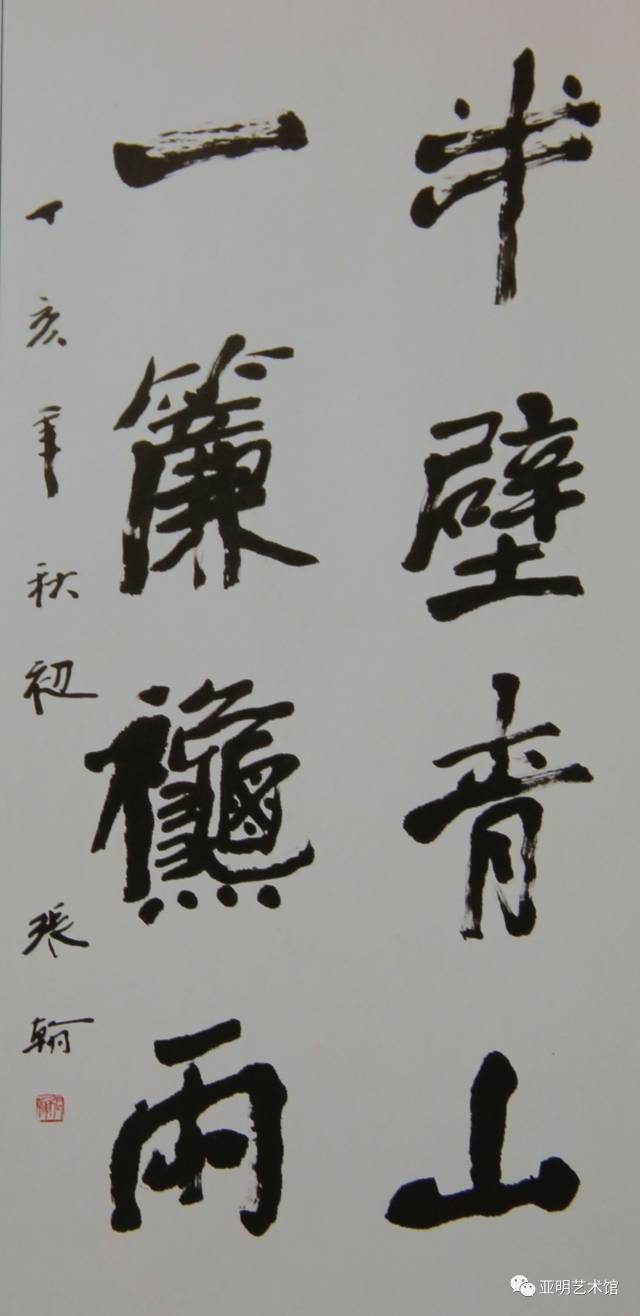 半壁青山
一簾龝雨
丁亥年秋初 張翰
亚明艺术馆